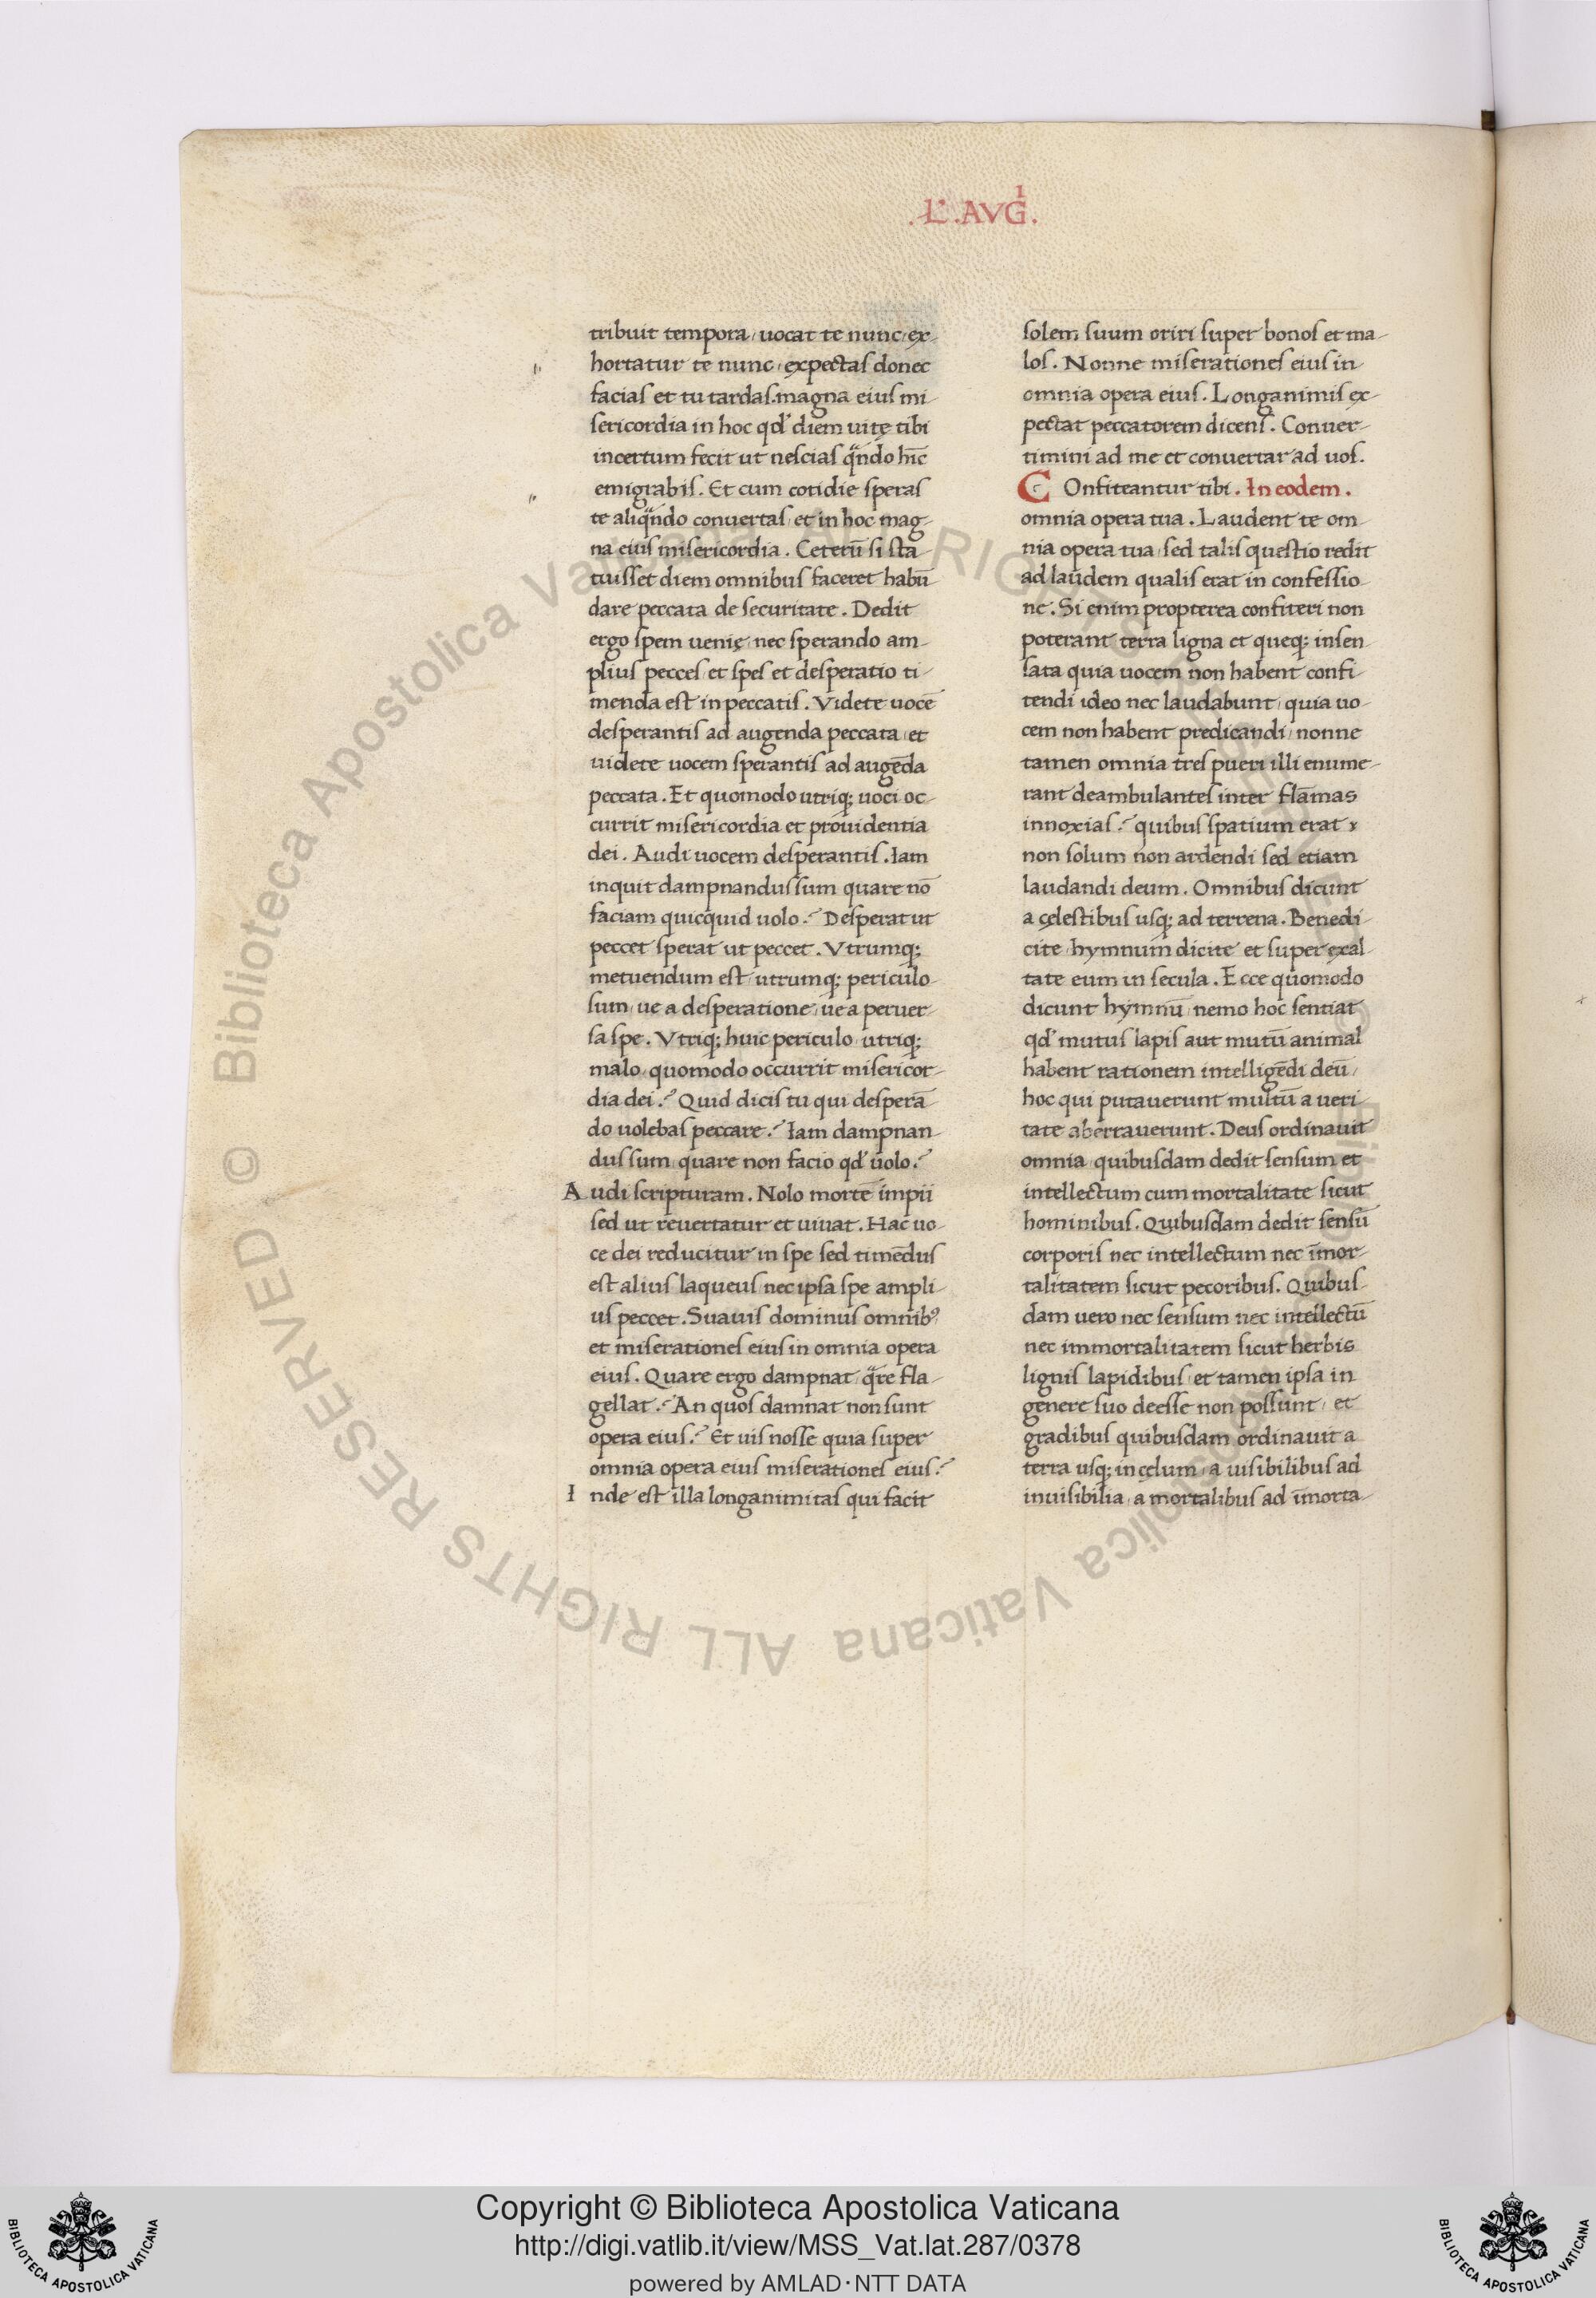 .L'.AVGͥ.
tribuit tempora, uocat te nunc, ex-
hortatur te nunc, expectas donec
facias et tu tardas. magna eius mi-
sericordia in hoc qd' diem uitę tibi
incertum fecit ut nescias qͣndo hīc
emigrabis. Et cum cotidie speras
te aliqͣndo conuertas, et in hoc mag-
na eius misericordia. Ceterū si sta-
tuisset diem omnibus faceret habū-
dare peccata de securitate. Dedit
ergo spem uenię, nec sperando am-
plius pecces, et spes et desperatio ti-
menda est in peccatis. Videte uocē
desperantis ad augenda peccata, et
uidete uocem sperantis ad augēda
peccata. Et quomodo utriq; uoci oc-
currit misericordia et prouidentia
dei. Audi uocem desperantis. Iam
inquit dampnandus sum quare nō
faciam quicquid uolo? Desperat ut
peccet sperat ut peccet. Vtrumq;
metuendum est, utrumq; periculo-
sum, ue a desperatione, ue a peruer-
sa spe. Vtriq; huic periculo, utriq;
malo, quomodo occurrit misericor-
dia dei? Quid dicis tu qui desperā-
do uolebas peccare? Iam dampnan-
dus sum, quare non facio qd' uolo?
Audi scripturam. Nolo mortē impii
sed ut reuertatur et uiuat. Hac uo-
ce dei reducitur in spe sed timēdus
est alius laqueus, nec ipsa spe ampli-
us peccet. Suauis dominus omnibꝰ
et miserationes eius in omnia opera
eius. Quare ergo dampnat, qͣre fla-
gellat? An quos damnat non sunt
opera eius? Et uis nosse quia super
omnia opera eius miserationes eius?
Inde est illa longanimitas qui facit
solem suum oriri super bonos et ma-
los. Nonne miserationes eius in
omnia opera eius. Longanimis ex-
pectat peccatorem dicens. Conuer-
timini ad me et conuertar ad uos.
COnfiteantur tibi. In eodem.
omnia opera tua. Laudent te om-
nia opera tua, sed talis questio redit
ad laudem qualis erat in confessio-
ne. Si enim propterea confiteri non
poterant terra ligna et queq; insen-
sata quia uocem non habent confi-
tendi ideo nec laudabunt, quia uo-
cem non habent predicandi, nonne
tamen omnia tres pueri illi enume-
rant deambulantes inter flāmas
innoxias? quibus spatium erat
non solum non ardendi sed etiam
laudandi deum. Omnibus dicunt
a cęlestibus usq; ad terrena. Benedi-
cite, hymnum dicite et super exal-
tate eum in secula. Ecce quomodo
dicunt hymnū, nemo hoc sentiat
qd' mutus lapis aut mutū animal
habent rationem intelligēdi deū,
hoc qui putauerunt multū a ueri-
tate aberrauerunt. Deus ordinauit
omnia, quibusdam dedit sensum et
intellectum cum mortalitate sicut
hominibus. Quibusdam dedit sensū
corporis nec intellectum nec īmor-
talitatem sicut pecoribus. Quibus-
dam uero nec sensum nec intellectū
nec immortalitatem sicut herbis
lignis lapidibus, et tamen ipsa in
genere suo deesse non possunt, et
gradibus quibusdam ordinauit a
terra usq; in cęlum, a uisibilibus ad
inuisibilia, a mortalibus ad īmorta-
© Biblioteca Apostolica Vaticana ALL RIGHTS RESERVED © Biblioteca Apostolica Vaticana ALL RIGHTS RESERVED
Copyright © Biblioteca Apostolica Vaticana
http://digi.vatlib.it/view/MSS_Vat.lat.287/0378
powered by AMLAD·NTT DATA
BIBLIOTECA APOSTOLICA VATICANA
BIBLIOTECA APOSTOLICA VATICANA